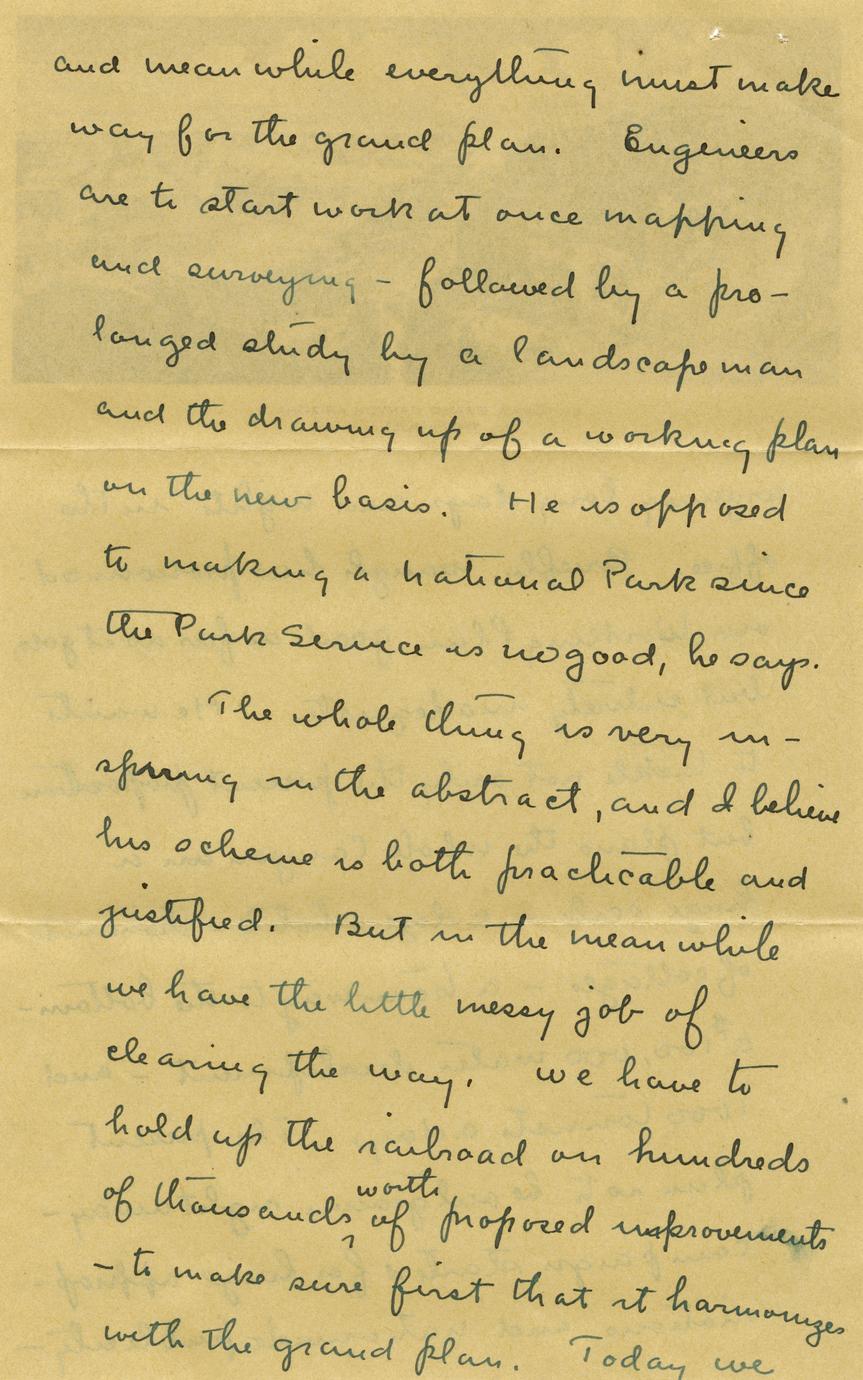 and meanwhile everything must make
way for the grand plan. Engineers
are to start work at once mapping
and surveying - followed by a pro-
longed study by a landscape man
and the drawing up of a working plan
on the new basis. He is opposed
to making a national Park since
the Park Service is no good, he says.
The whole thing is very in-
spiring in the abstract, and I believe
his scheme is both practicable and
justified. But in the meanwhile
we have the little messy job of
clearing the way. We have to
hold up the railroad on hundreds
worth
of thousands of proposed improvements
- to make sure first that it harmonizes
with the grand plan. Today we